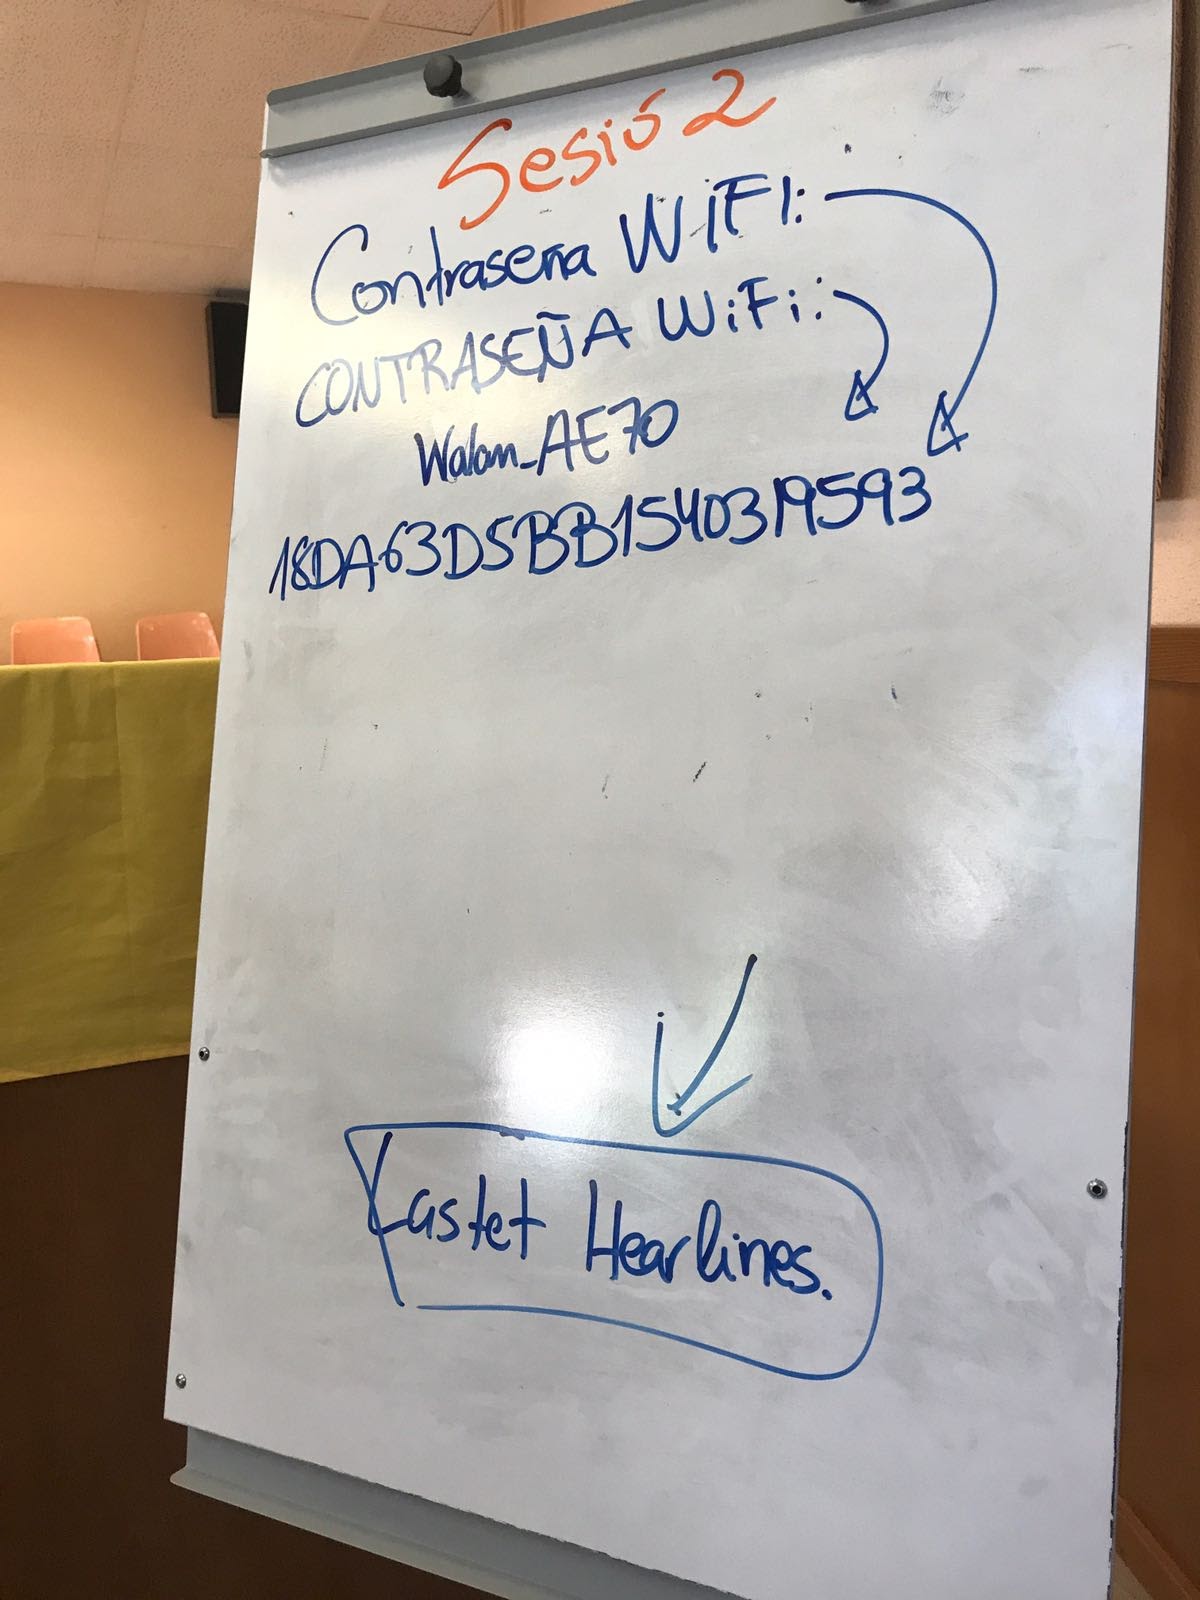 Sesió 2
Contraseña WIFI:
CONTRASEÑA WiFi:
Walan_AE70
18DA63D5BB1540319593
Lastet Hearlines.